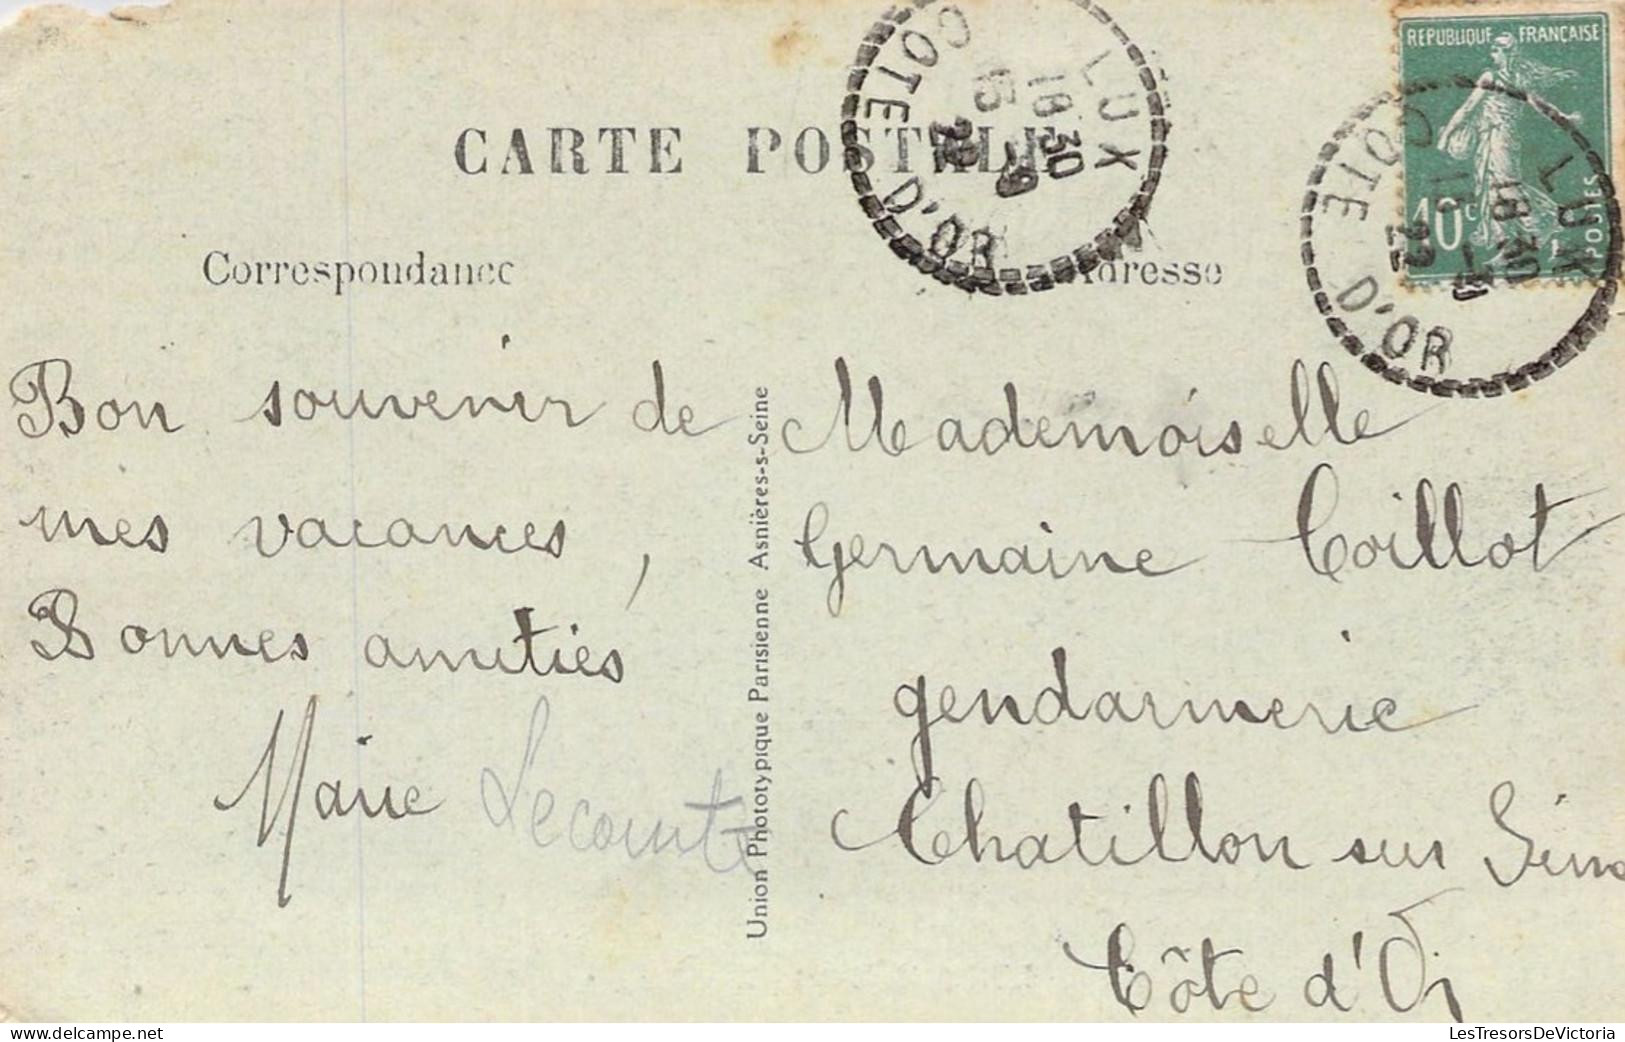 CARTE POSTALE
Correspondance
Adresse
Bon souvenir de
mes vacances,
Bonnes amitiés
Marie Lecomte
Union Phototypique Parisienne Asnières-s-Seine
Mademoiselle
Germaine Coillot
gendarmerie
Chatillon sur Seine
Côte d'Or
REPUBLIQUE FRANÇAISE
10c
POSTES
LUX
18 30
15
22
COTE D'OR
LUX
18 30
15
22
COTE D'OR
LesTresorsDeVictoria
https://www.delcampe.net